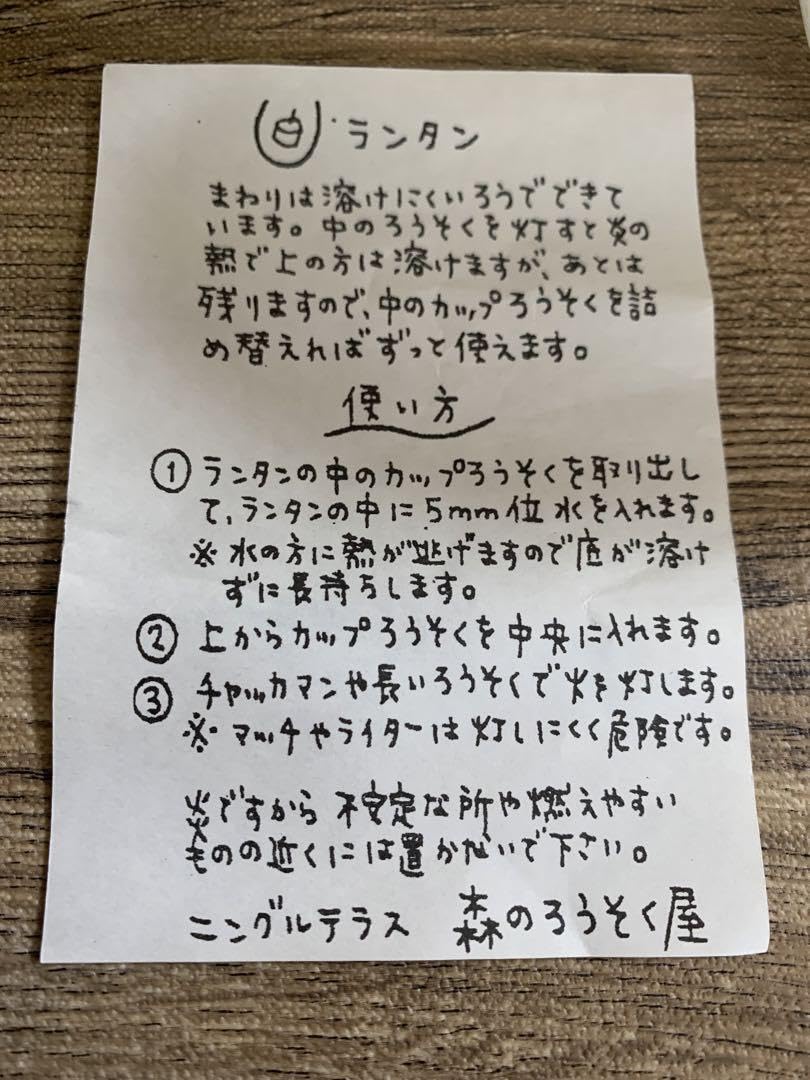 ・ランタン
まわりは溶けにくいろうでできて
います。中のろうそくを灯すと炎の
熱で上の方は溶けますが、あとは
残りますので、中のカップろうそくを詰
め替えればずっと使えます。
使い方
① ランタンの中のカップろうそくを取り出し
て、ランタンの中に5mm位水を入れます。
※ 水の方に熱が逃げますので底が溶け
ずに長持ちします。
② 上からカップろうそくを中央に入れます。
③ チャッカマンや長いろうそくで火を灯します。
※ マッチやライターは灯しにくく危険です。
炎ですから不安定な所や燃えやすい
ものの近くには置かないで下さい。
ニングルテラス 森のろうそく屋